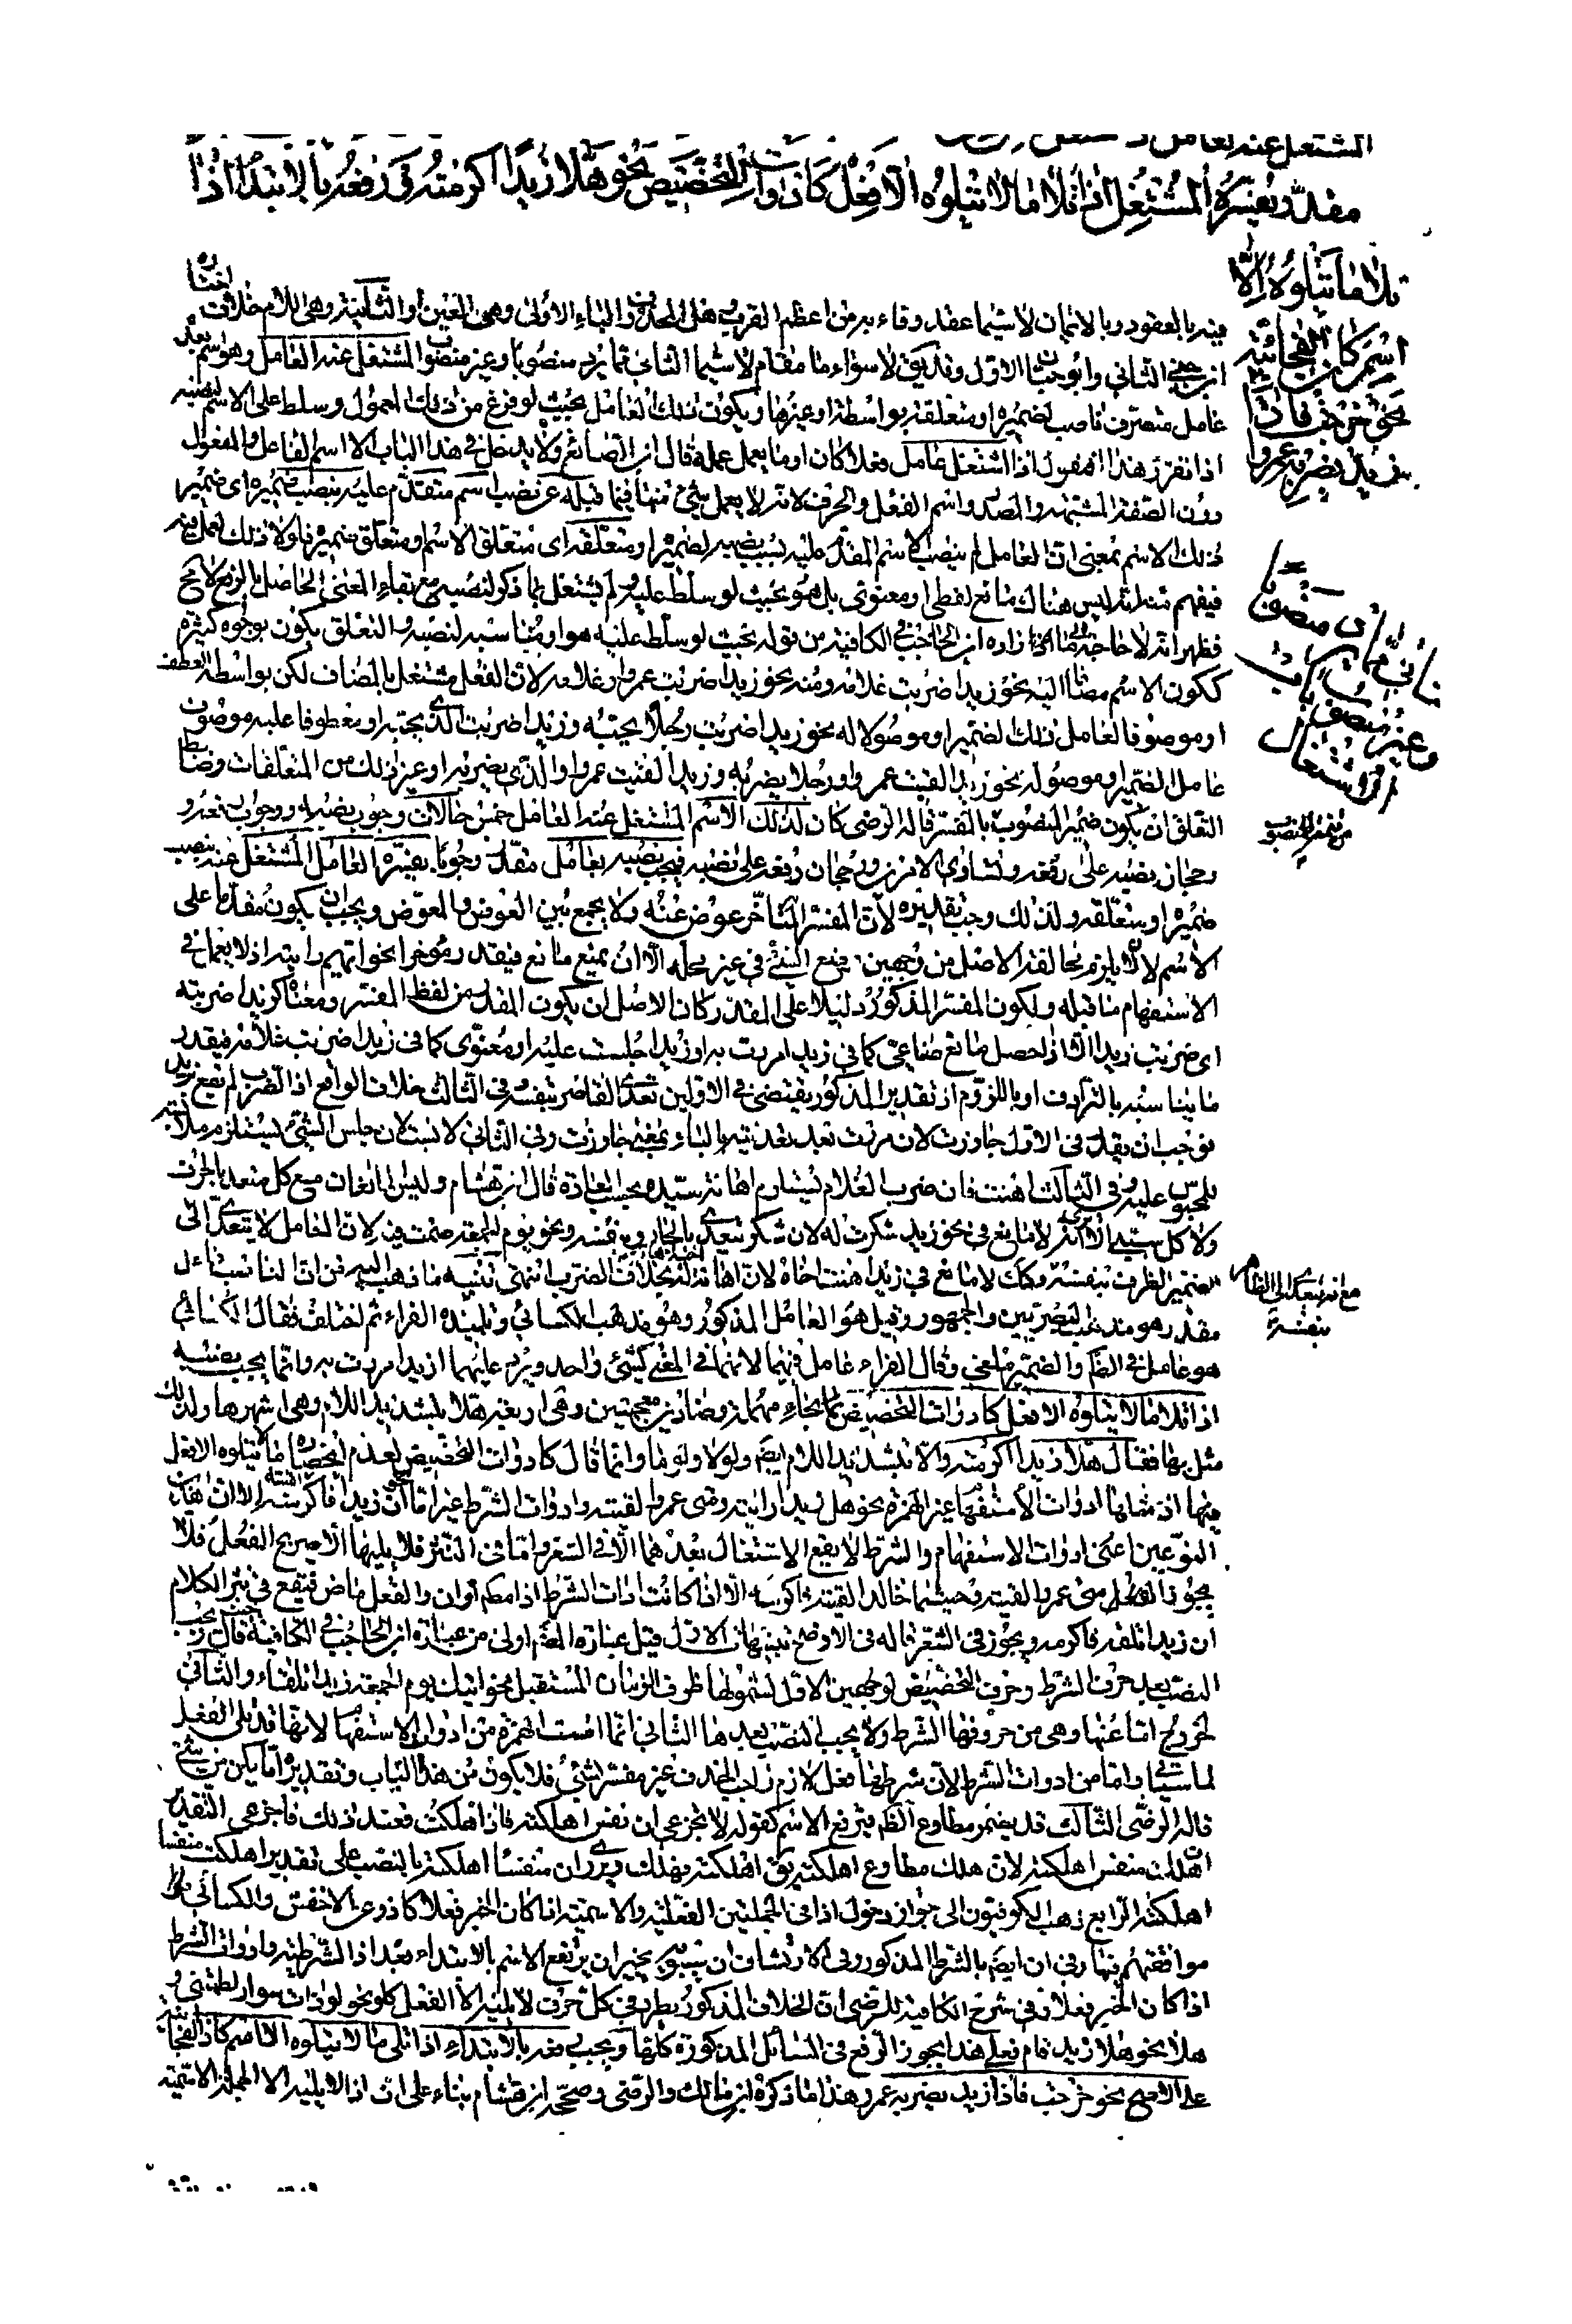 مقدر يفسره المشتغل اذا تلا ما لا يتلوه الا فعل كادوات التخصيص نحو هلا زيدا اكرمته وفي رفعه بالابتداء اذا
تلا ما لا يتلوه الا
اسم كاذا الفجائية
نحو خرجت فاذا
زيد يضربه عمرو
فيه بالعقود وبالايمان لا سيما عقد وفاء به من اعظم القرب
عامل متصرف ناصب لضميره او متعلقه بواسطة او غيرها ويكون ذلك العامل بحيث لو فرغ من ذلك المعمول وسلط على الاسم لنصبه
اذا تقرر هذا اذا اشتغل عامل فعلا كان او ما يعمل عمله قال ابن الصائغ ولا يدخل في هذا الباب الا اسم الفاعل والمفعول
دون الصفة المشبهة والمصدر واسم الفعل والحرف لانه لا يعمل شيء منها فيما قبله عن نصب اسم متقدم عليه بنصب ضميره اي ضمير
ذلك الاسم بمعنى ان العامل لم ينصب الاسم المقدم عليه بسبب نصبه لضميره او متعلقه اي متعلق الاسم او متعلق ضميره فلولا ذلك لعمل فيه
فيفهم منه انه ليس هناك مانع لفظي او معنوي بل هو بحيث لو سلط عليه ولم يشتغل بما ذكر لنصبه مع بقاء المعنى الحاصل بالرفع لا يحتاج
فظهر انه لا حاجة الى ما زاده ابن الحاجب في الكافية من قوله بحيث لو سلط عليه هو او مناسبه لنصبه والتعلق يكون بوجوه كثيرة
ككون الاسم مضافا اليه نحو زيدا ضربت غلامه ومنه نحو زيدا ضربت عمرا وغلامه لان الفعل مشتغل بالمضاف لكن بواسطة العطف
او موصوفا لعامل ذلك لضمير او موصولا له نحو زيدا ضربت رجلا يحبه وزيدا ضربت الذي يحبه او معطوفا عليه موصوف
عامل الضمير او موصوله نحو زيدا لقيت عمرا ورجلا يضربه وزيدا لقيت عمرا والذي يضربه او غير ذلك من المتعلقات وضابط
التعلق ان يكون ضمير المنصوب بالمفسر قاله الرضي كان لذلك الاسم المشتغل عنه العامل خمس حالات وجوب نصبه ووجوب رفعه و
رجحان نصبه على رفعه وتساوي الامرين ورجحان رفعه على نصبه فيجب نصبه بعامل مقدر وجوبا يفسره العامل المشتغل عنه بنصب
ضميره او متعلقه ولذلك وجب تقديره لان المفسر المتاخر عوض عنه ولا يجمع بين العوض والمعوض ويجب ان يكون مقدما على
الاسم لئلا يلزم مخالفة الاصل من وجهين وضع الشيء في غير محله الا ان يمنع مانع فيقدر مؤخرا نحو ايهم رايته اذ لا يعمل في
الاستفهام ما قبله ولكون المفسر المذكور دليلا على المقدر كان الاصل ان يكون المقدر من لفظ المفسر ومعناه كزيدا ضربته
اي ضربت زيدا الا اذا حصل مانع صناعي كما في زيدا مررت به او زيدا جلست عليه او معنوي كما في زيدا ضربت غلامه فيقدر
ما يناسبه بالترادف او باللزوم اذ تقدير المذكور يقتضي في الاولين تعدي القاصر بنفسه وفي الثالث خلاف الواقع اذ الضرب لم يقع بزيد
فوجب ان يقدر في الاول جاوزت لان مررت بعد تعديته بالباء بمعنى جاوزت وفي الثاني لابست لان جلس الشيء يستلزم ملابسة
المجلوس عليه وفي الثالث اهنت فان ضرب الغلام يستلزم اهانة سيده بحسب العادة قال ابن هشام وليس المانعان مع كل متعد بالحرف
ولا كل سببي الا ترى انه لا مانع في نحو زيدا شكرت له لان شكر يتعدى بالجار وبنفسه ونحو يوم الجمعة صمت فيه لان العامل لا يتعدى الى
مع انه يتعدى الى الظاهر
بنفسه
ضمير الظرف بنفسه وكذلك لا مانع في زيدا اهنت اخاه لان اهانة اخيه اهانة له بخلاف الضرب انتهى تنبيه ما ذهب اليه من ان الناصب عامل
مقدر هو مذهب البصريين والجمهور وقيل هو العامل المذكور وهو مذهب الكسائي وتلميذه الفراء ثم اختلف فقال الكسائي
هو عامل في الظاهر والضمير ملغى وقال الفراء عامل فيهما لانهما في المعنى كشيء واحد ويرد عليهما ازيدا مررت به وانما يجب نصبه
اذا تلا ما لا يتلوه الا فعل كادوات التحضيض بالحاء مهملة وضادين معجمتين وهي اربعة هلا بتشديد اللام وهي اشهرها ولذلك
مثل بها فقال هلا زيدا اكرمته والا بتشديد اللام ايضا ولولا ولوما وانما قال كادوات التحضيض لعدم انحصار ما لا يتلوه الا فعل
فيها اذ مثلها ادوات الاستفهام غير الهمزة نحو هل زيدا رايته ومتى عمرا لقيته وادوات الشرط غير اما نحو ان زيدا لقيته فاكرمه الا ان هذين
النوعين اعني ادوات الاستفهام والشرط لا يقع الاشتغال بعدهما الا في الشعر واما في النثر فلا يليها الا صريح الفعل فلا
ان زيدا تلقه فاكرمه ويجوز في الشعر قاله في الاوضح تنبيهات الاول قيل عبارة المصنف اولى من عبارة ابن الحاجب في الكافية حيث قال ويجب
النصب بعد حرف الشرط وحرف التحضيض لوجهين الاول لشمولها ظرف الزمان المستقبل نحو اتيك يوم الجمعة زيدا تلقاه والثاني
لخروج اما عنها وهي من حروف الشرط ولا يجب النصب بعدها الثاني انما استثنيت الهمزة من ادوات الاستفهام لانها قد يلي الفعل
لما سياتي واما من ادوات الشرط لان شرطها فعل لازم واجب الحذف غير مفسر بشيء فلا يكون من هذا الباب وتقديره اما يكن من شيء
قاله الرضي الثالث قد يضمر مطاوع الظاهر فيرفع الاسم كقوله لا تجزعي ان منفس اهلكته فاذا هلكت فعند ذلك فاجزعي التقدير
ان هلك منفس اهلكته لان هلك مطاوع اهلك يقال اهلكته فهلك ويروى ان منفسا اهلكته بالنصب على تقدير اهلكت منفسا
اهلكته الرابع ذهب الكوفيون الى جواز دخول اذا في الجملتين الفعلية والاسمية اذا كان الخبر فعلا كاذ وعن الاخفش والكسائي
موافقتهم فيها وفي ان ايضا بالشرط المذكور وفي الارتشاف ان سيبويه يجيز ان يرتفع الاسم بالابتداء بعد اذا الشرطية وادوات الشرط
اذا كان الخبر فعلا وفي شرح الكافية للرضي ان الخلاف المذكور يطرد في كل حرف لا يليه الا الفعل كلو نحو لو ذات سوار لطمتني و
هلا نحو هلا زيد قام فعلى هذا يجوز الرفع في المسائل المذكورة كلها ويجب رفعه بالابتداء اذا تلى ما لا يتلوه الا اسم كاذا الفجائية
على الاصح نحو خرجت فاذا زيد يضربه عمرو هذا ما ذكره ابن مالك والرضي وصححه ابن هشام بناء على ان اذا لا يليه الا الجملة الاسمية